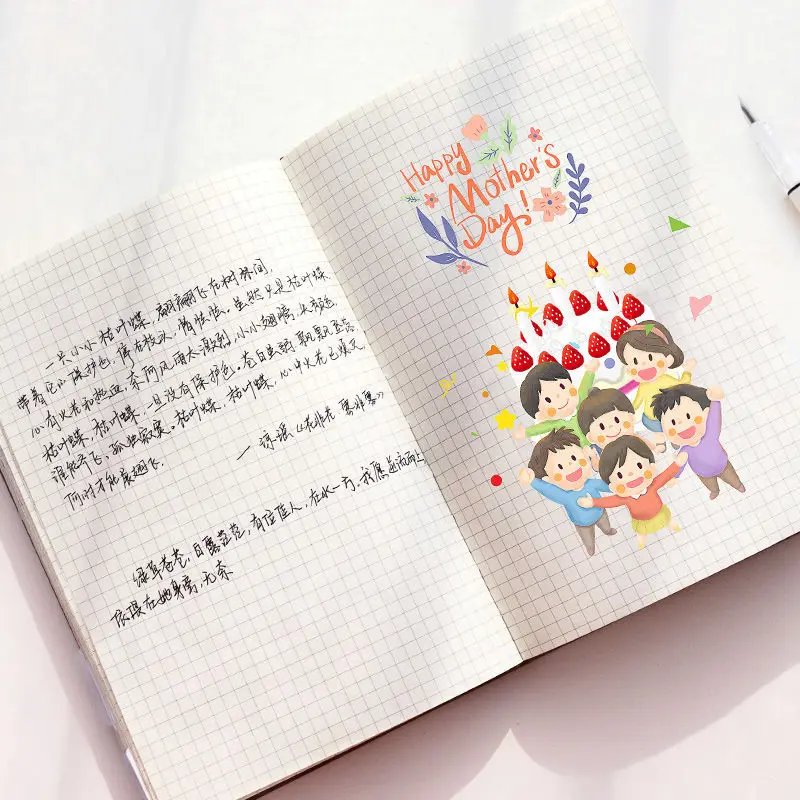 Happy
Mother's
Day!
一只小小枯叶蝶,翩翩飞在树林间,
带着它的保护色,停在枝头,悄怯怯。虽然只是枯叶蝶
心有火花和热血,奈何风雨太激烈,小小翅膀,
枯叶蝶,枯叶蝶,一旦没有保护色,苍白 飘飘
谁能齐飞,孤单寂寞。枯叶蝶,枯叶蝶,心中火花已熄灭,
何时才能展翅飞. — 琼瑶《花非花 雾非雾》
绿草苍苍,白露茫茫,有位佳人,在水一方,我愿逆流而上
依偎在她身旁,无奈